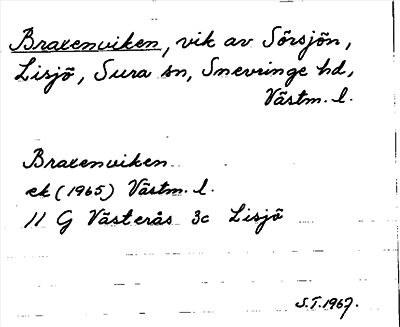 Braxenviken, vik av Sörsjön,
Lisjö, Sura sn, Snevringe hd,
Västm. l.
Braxenviken
ek (1965) Västm. l.
11 G Västerås 3c Lisjö
S.T. 1967.